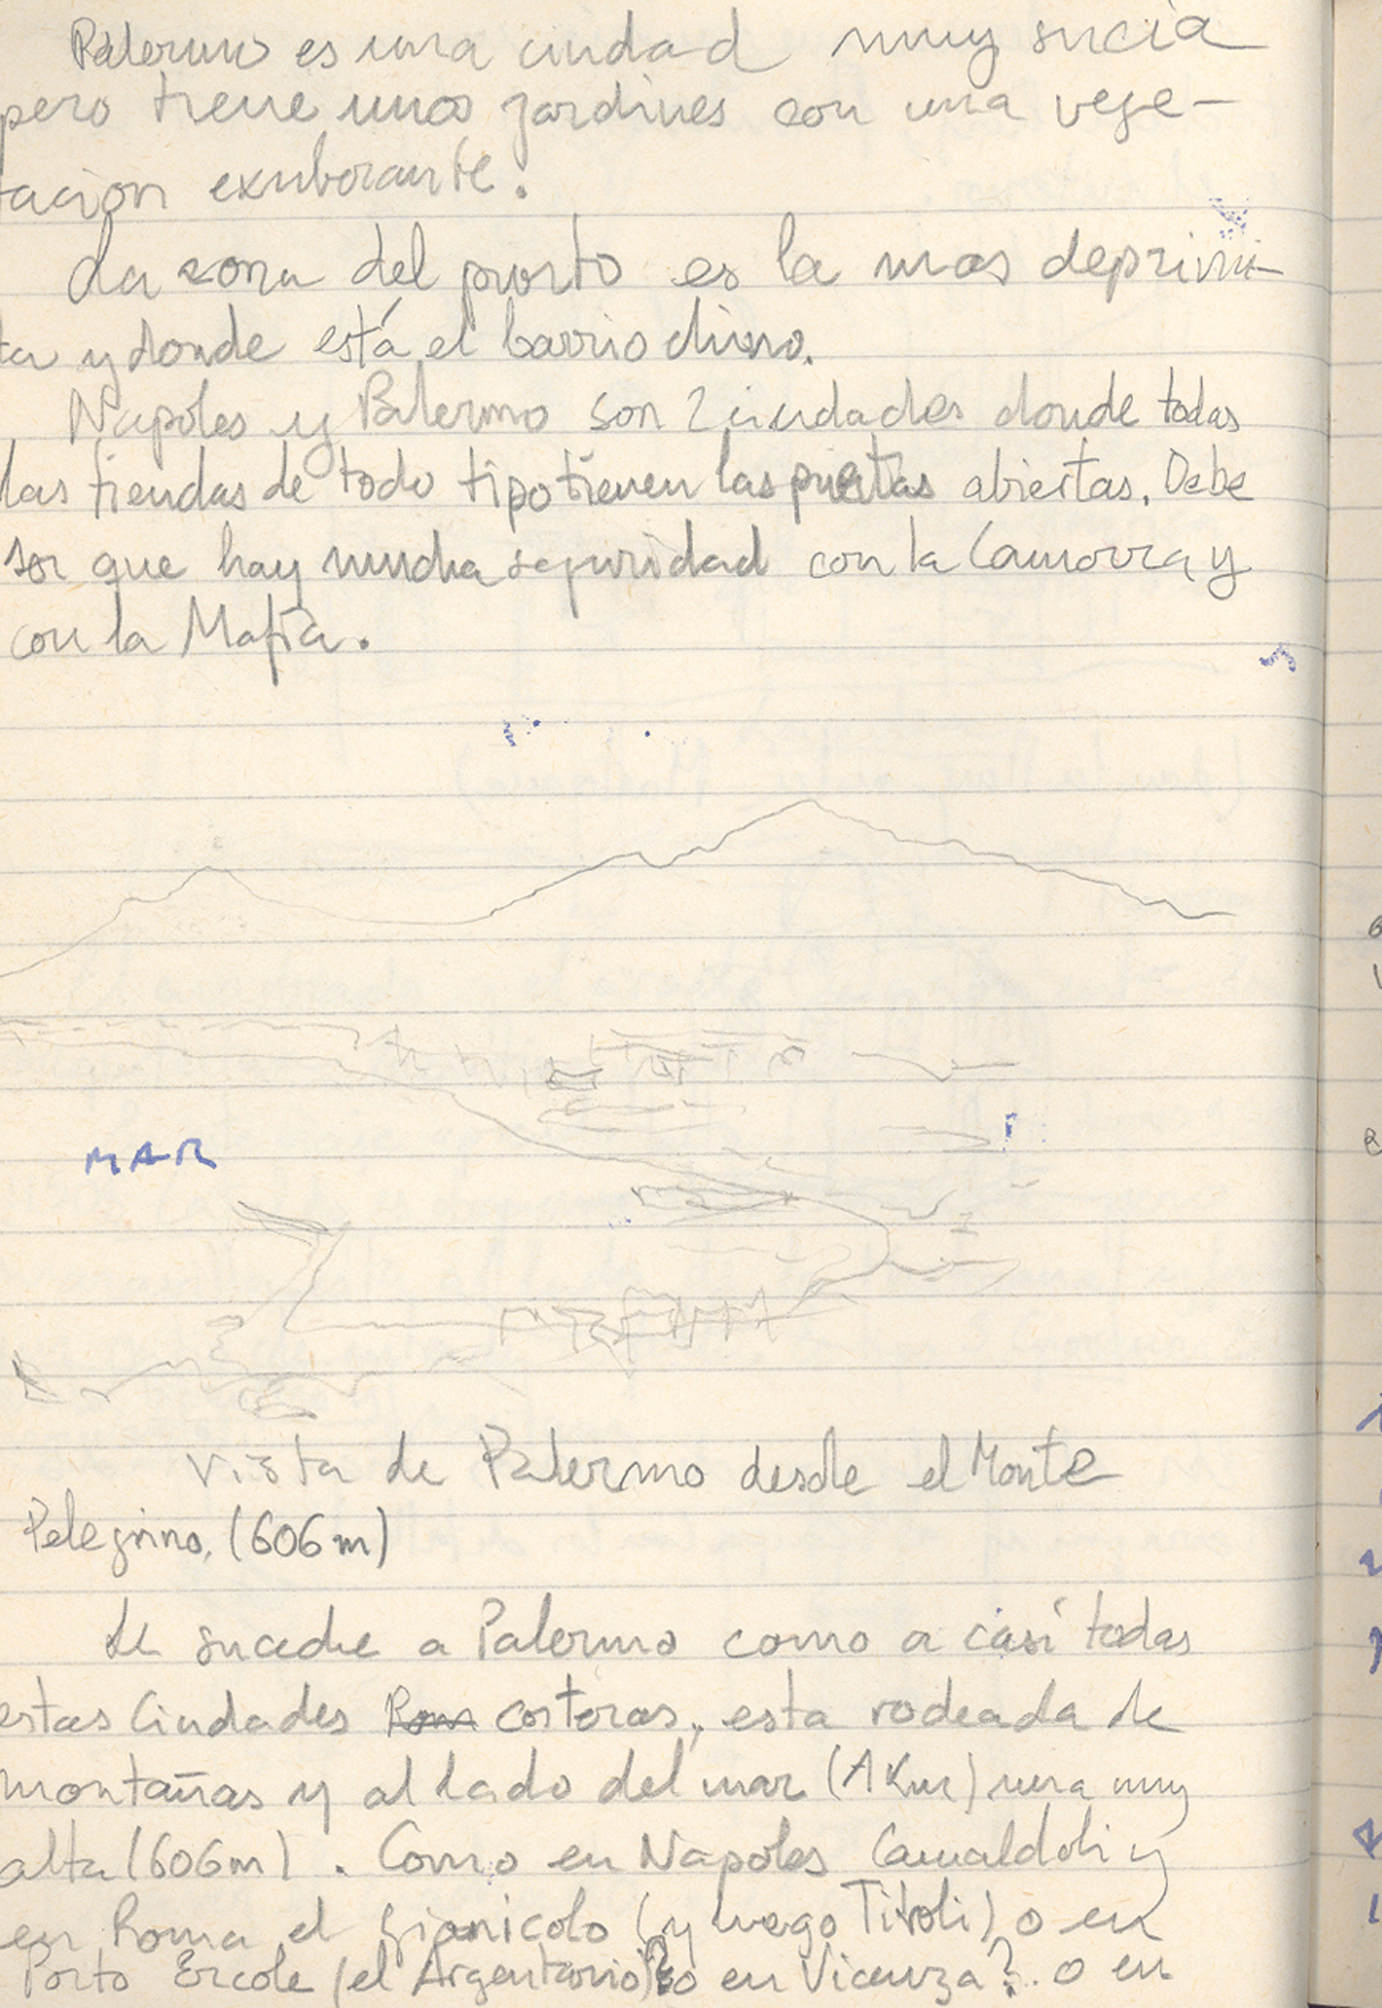 Palermo es una ciudad muy sucia
pero tiene unos jardines con una vege-
tacion exuberante.
La zona del puerto es la mas deprimi-
ta y donde está el barrio chino.
Napoles y Palermo son 2 ciudades donde todas
las tiendas de todo tipo tienen las puertas abiertas. Debe
ser que hay mucha seguridad con la Camorra y
con la Mafia.
MAR
Vista de Palermo desde el Monte
Pelegrino. (606 m)
Le sucede a Palermo como a casi todas
estas Ciudades Rom costeras, esta rodeada de
montañas y al lado del mar (A Km) una muy
alta (606m). Como en Napoles Camaldoli y
en Roma el Gianicolo (y luego Tivoli) o en
Porto Ercole (el Argentario)? o en Vicenza? o en